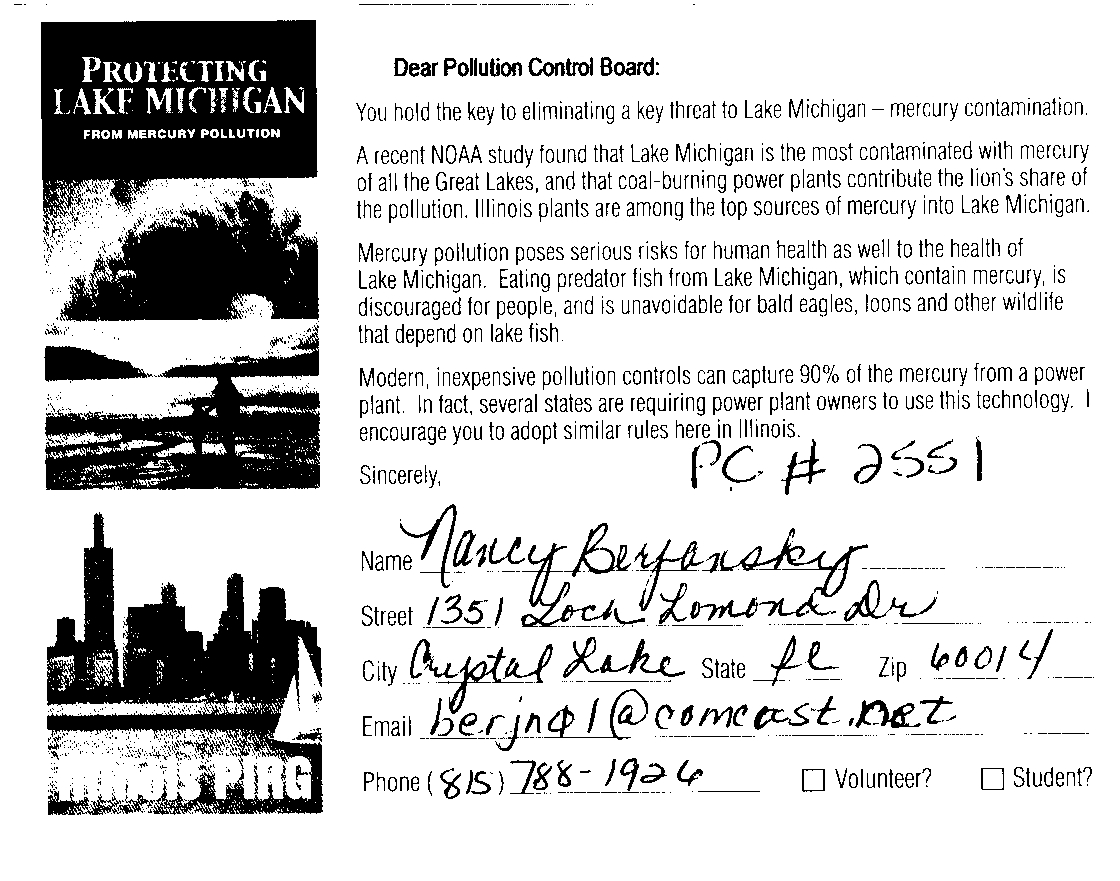 PROTECTING
LAKE MICHIGAN
FROM MERCURY POLLUTION
Illinois PIRG
Dear Pollution Control Board:
You hold the key to eliminating a key threat to Lake Michigan – mercury contamination.
A recent NOAA study found that Lake Michigan is the most contaminated with mercury
of all the Great Lakes, and that coal-burning power plants contribute the lion's share of
the pollution. Illinois plants are among the top sources of mercury into Lake Michigan.
Mercury pollution poses serious risks for human health as well to the health of
Lake Michigan. Eating predator fish from Lake Michigan, which contain mercury, is
discouraged for people, and is unavoidable for bald eagles, loons and other wildlife
that depend on lake fish.
Modern, inexpensive pollution controls can capture 90% of the mercury from a power
plant. In fact, several states are requiring power plant owners to use this technology. I
encourage you to adopt similar rules here in Illinois.
Sincerely,
PC # 2551
Name Nancy Berjansky
Street 1351 Loch Lomond Dr
City Crystal Lake State IL Zip 60014
Email berjn01@comcast.net
Phone (815) 788-1926 Volunteer? Student?